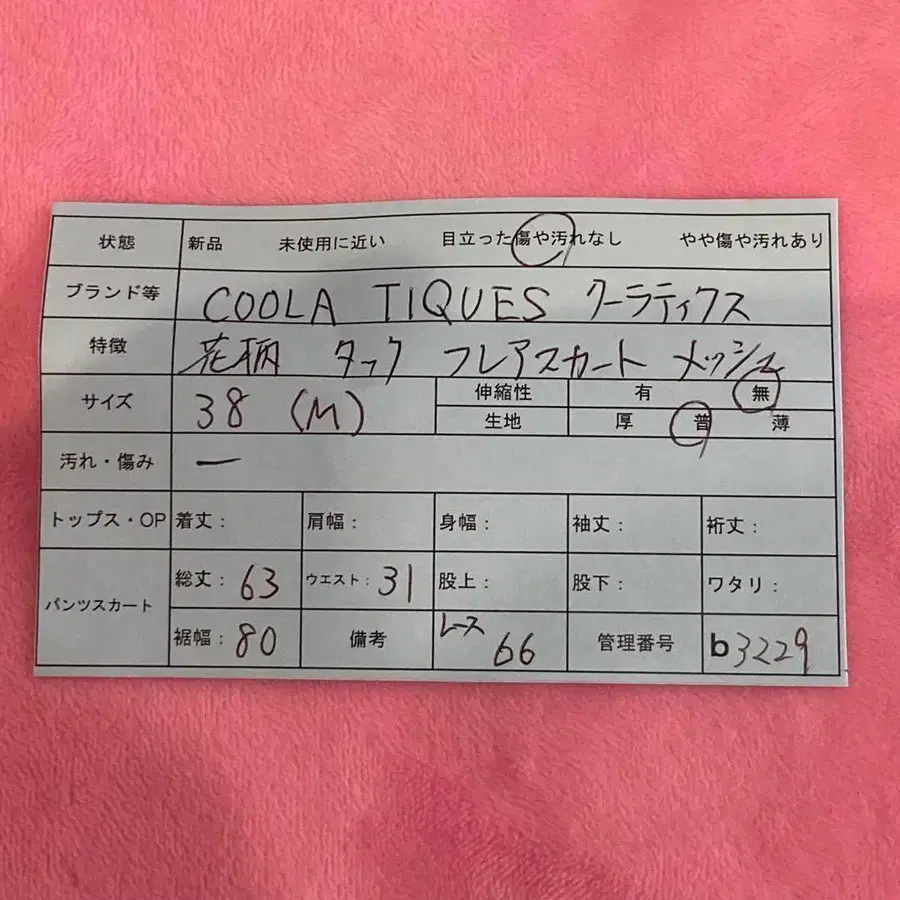 状態 新品 未使用に近い 目立った傷や汚れなし やや傷や汚れあり
ブランド等 COOLA TIQUES クーラティクス
特徴 花柄 タック フレアスカート メッシュ
サイズ 38 (M) 伸縮性 有 無
生地 厚 普 薄
汚れ・傷み ー
トップス・OP 着丈: 肩幅: 身幅: 袖丈: 裄丈:
パンツスカート 総丈: 63 ウエスト: 31 股上: 股下: ワタリ:
裾幅: 80 備考 レース 66 管理番号 b3229